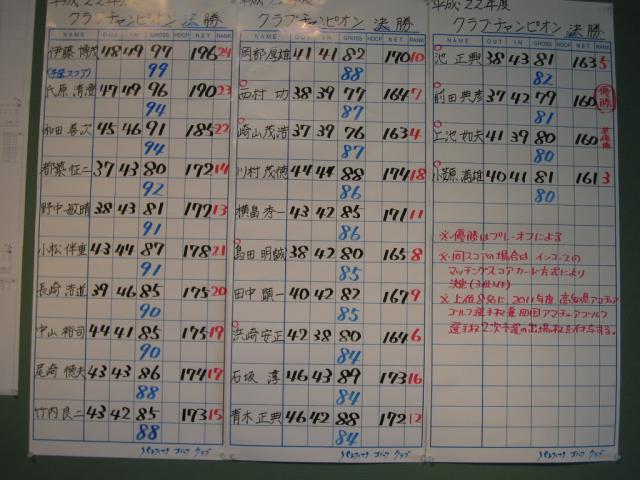 平成22年度
クラブチャンピオン 決勝
NAME OUT IN GROSS HDCP NET RANK
伊藤 博次 48 49 97 196 24
(予選スコア) 99
47 49 96 190 23
94
和田 善次 45 46 91 185 22
94
都築 征二 37 43 80 172 14
92
野中 敏晴 38 43 81 172 13
91
小松 伴重 43 44 87 178 21
91
長崎 清道 39 46 85 175 20
90
中山 裕司 44 41 85 175 19
90
尾崎 43 43 86 174 17
88
竹内 良二 43 42 85 173 15
88
パシフィック ゴルフ クラブ
平成22年度
クラブチャンピオン 決勝
NAME OUT IN GROSS HDCP NET RANK
岡部 厚雄 41 41 82 170 10
88
西村 功 38 39 77 164 7
87
崎山 茂浩 37 39 76 163 4
87
川村 茂徳 44 44 88 174 18
86
横畠 秀一 43 42 85 171 11
86
島田 明誠 38 42 80 165 8
85
田中 顕一 40 42 82 167 9
85
浜崎 安正 42 38 80 164 6
84
石坂 淳 46 43 89 173 16
84
青木 正典 46 42 88 172 12
84
パシフィック ゴルフ クラブ
平成22年度
クラブチャンピオン 決勝
NAME OUT IN GROSS HDCP NET RANK
池 正典 38 43 81 163 5
82
前田 典彦 37 42 79 160 優勝
81
上池 如夫 41 39 80 160 準優勝
80
小笠原 満雄 40 41 81 161 3
80
※優勝はプレーオフによる
※同スコアの場合は インコースの
マッチングスコアカード方式により
決定(3位以下)
※上位8名に 2011年度 高知県アマチュア
ゴルフ選手権 兼 四国アマチュアゴルフ
選手権2次予選の出場権を付与する。
パシフィック ゴルフ クラブ